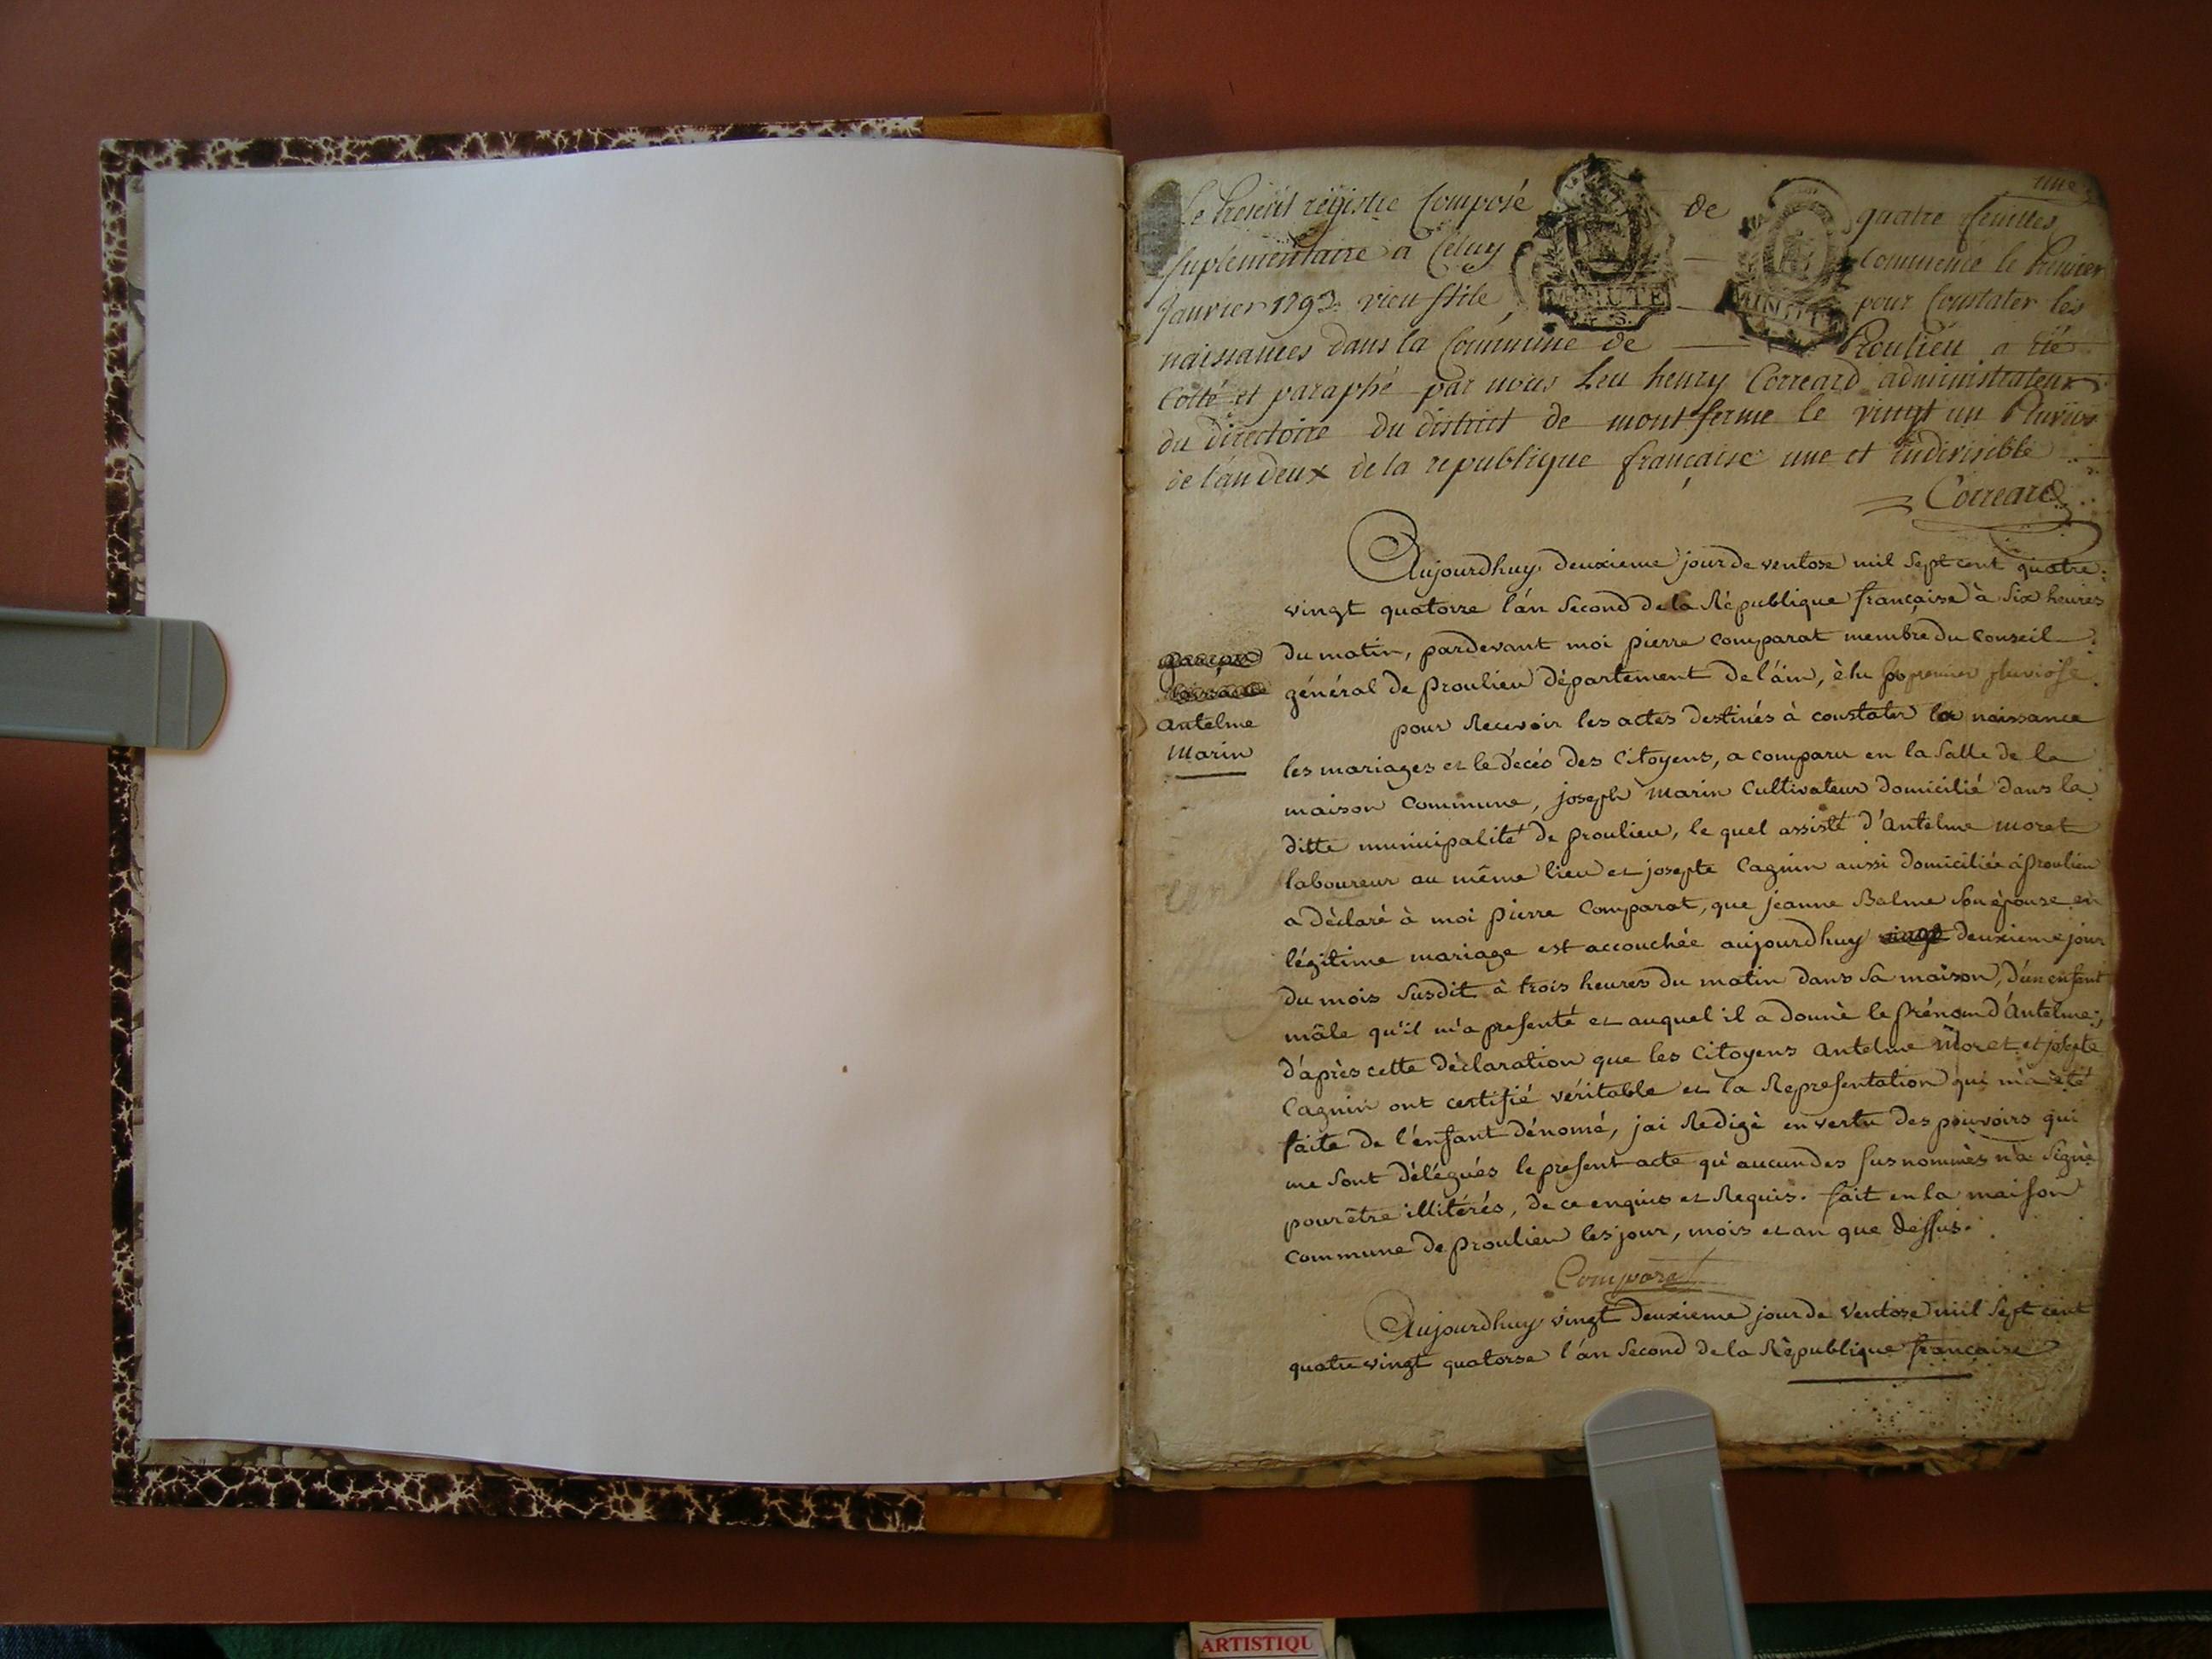 une
Le present régistre composé de quatre feuilles
suplementaire a celuy commencé le premier
Janvier 1793 vieu stile pour constater les
MINUTE
MINUTE
naissances dans la commune de Proulieu a été
Cotté et paraphé par nous Leu henry Correard administrateur
du directoire du district de montferme le vingt un Pluvios
de l'an deux de la republique française une et indivisible
Correard
Aujourdhuy deuxieme jour de ventose mil sept cent quatre
vingt quatorze l'an second de la République française à six heures
du matin, pardevant moi pierre comparat membre du Conseil
général de proulieu département de l'ain, élu premier pluviose
antelme
Marin
pour Recevoir les actes destinés à constater la naissance
les mariages et le décès des Citoyens, a comparu en la Salle de la
maison Commune, joseph Marin Cultivateur domicilié dans la
ditte municipalité de proulieu, le quel assisté d'Antelme moret
laboureur au même lieu et josepte Cagnin aussi domiciliée à proulieu
a dèclaré à moi pierre Comparat, que jeanne Balme son épouse en
légitime mariage est accouchée aujourdhuy vingt deuxieme jour
du mois susdit à trois heures du matin dans sa maison, d'un enfant
mâle qu'il m'a presenté et auquel il a donné le prénom d'Antelme;
d'après cette déclaration que les Citoyens antelme Moret et josepte
Cagnin ont certifié véritable et la Representation qui m'a été
faite de l'enfant dénomé, jai Redigé en vertu des pouvoirs qui
me sont délégués le present acte qu'aucun des susnommés n'a signé
pour être illitérés, de ce enquis et Requis. fait en la maison
Commune de proulieu les jour, mois et an que dessus.
Comparat
Aujourdhuy vingt deuxieme jour de Ventose mil sept cent
quatre vingt quatorse l'an Second de la République française
ARTISTIQU